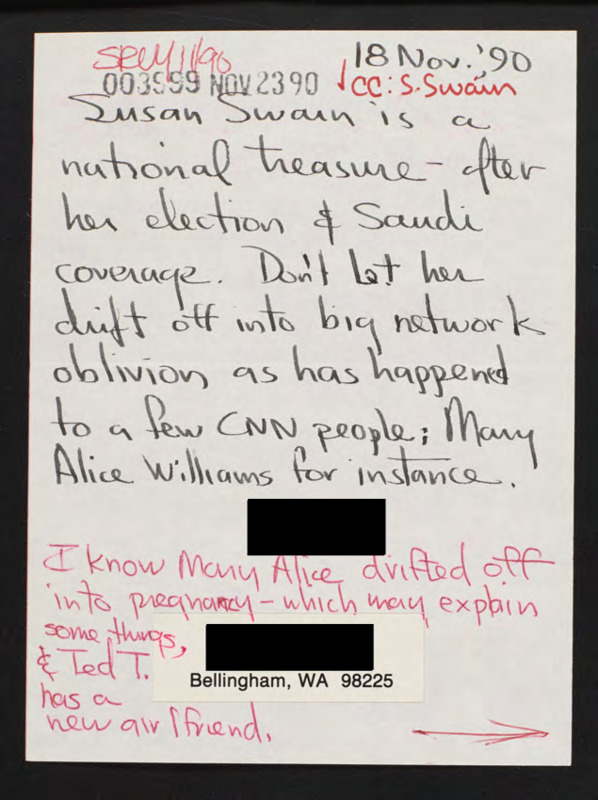 18 Nov. '90
003599 NOV 23 90
CC: S. Swain
Susan Swain is a
national treasure – after
her election & Saudi
coverage. Don't let her
drift off into big network
oblivion as has happened
to a few CNN people; Mary
Alice Williams for instance.
I know Mary Alice drifted off
into pregnancy – which may explain
some things,
& Ted T.
has a
new girlfriend.
Bellingham, WA 98225